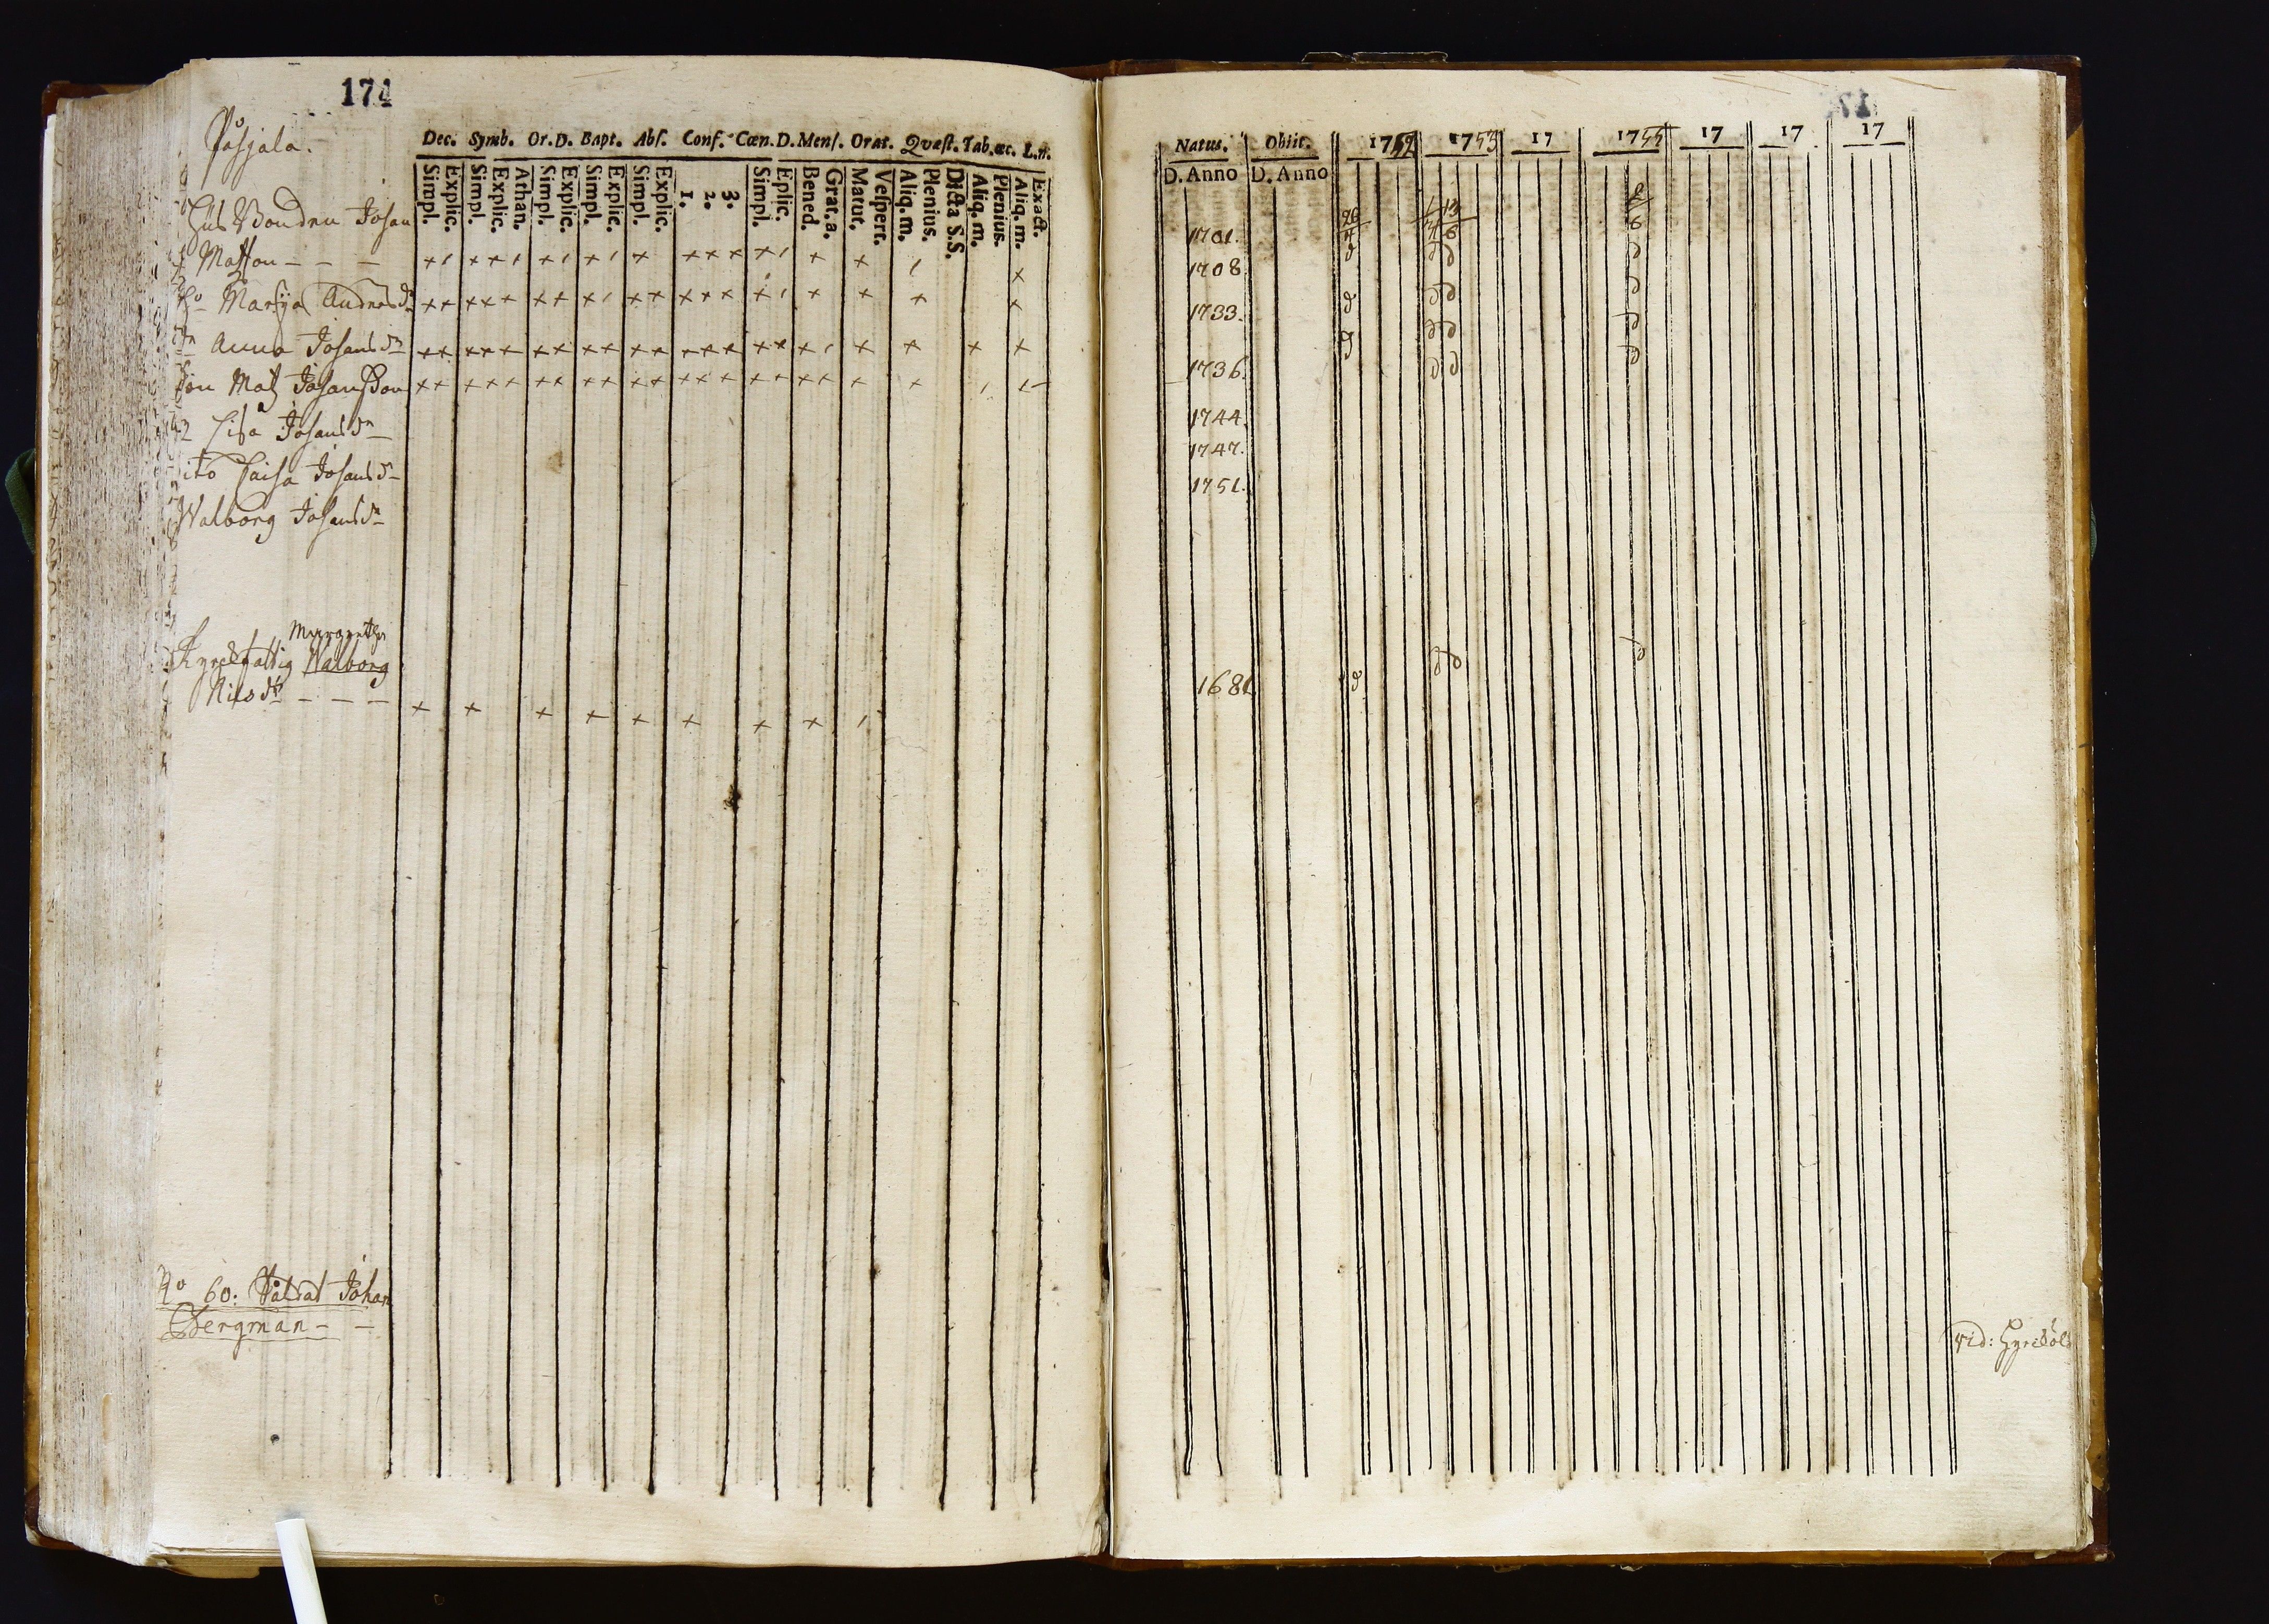 174
Påsjala.
Dec. Symb. Or.D. Bapt. Abs. Conf. Cœn.D. Mens. Orat. Qvæst. Tab.œc. L.n.
Simpl. Explic. Simpl. Explic. Athan. Simpl. Explic. Simpl. Explic. Simpl. Explic. 1. 2. 3. Simpl. Eplic. Bened. Grat.a. Matut. Vespert. Aliq.m. Plenius. Dicta S.S. Aliq.m. Plenius. Aliq.m. Exact.
Hus Bonden Johan
Matson - - -
Marsya Andersdr
dr Anna Johansdr
Son Mats Johansson
Lisa Johansdr
ito Caisa Johansdr
Walborg Johansdr
Margretha
Kyrckfattig Walborg
Nilsdr - - -
No 60. Såldat Johan
Bergman - -
Natus. Obiit. 1752 1753 17 1755 17 17 17
D. Anno D. Anno
1701.
1708
1733.
1736.
1744.
1747.
1751.
1681
vid: